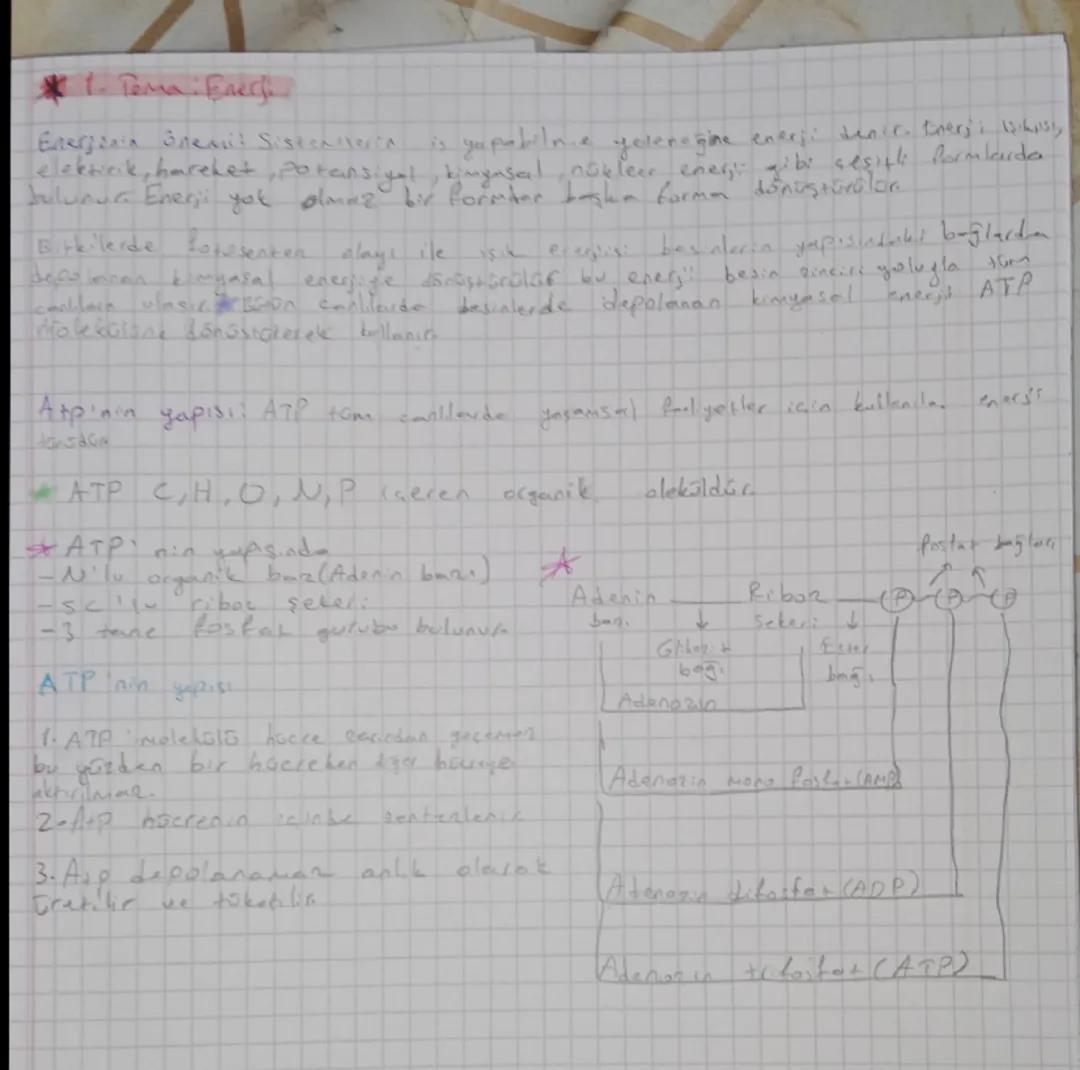 * 1. Tema: Enerji
Enerjinin önemi: Sistemlerin iş yapabilme yeteneğine enerji denir. Enerji ısı, ışık,
elektrik, hareket, potansiyel, kimyasal, nükleer enerji gibi çeşitli formlarda
bulunur. Enerji yok olmaz bir formdan başka forma dönüştürülür.
Bitkilerde fotosentez olayı ile ışık enerjisi besinlerin yapısındaki bağlarda
depolanan kimyasal enerjiye dönüştürülür bu enerji besin zinciri yoluyla tüm
canlılara ulaşır. Bütün canlılarda besinlerde depolanan kimyasal enerji ATP
Molekülüne dönüştürerek kullanır.
Atp'nin yapısı: ATP tüm canlılarda yaşamsal faaliyetler için kullanılan enerji
türüdür
ATP C, H, O, N, P içeren organik moleküldür.
* ATP' nin yapısında
- N'lu organik baz (Adenin bazı)
- 5C'lu riboz şekeri
- 3 tane fosfat gurubu bulunur
* Fosfat bağları
Adenin Riboz P P P
bazı şekeri
Glikozit Ester
bağı bağı
Adenozin
ATP'nin yapısı
1. ATP molekülü hücre zarından geçemez
bu yüzden bir hücreden diğer hücreye
aktarılmaz.
Adenozin mono fosfat (AMP)
2-Atp hücrenin içinde sentezlenir
3. Atp depolanamaz anlık olarak
üretilir ve tüketilir
Adenozin difosfat (ADP)
Adenozin trifosfat (ATP)